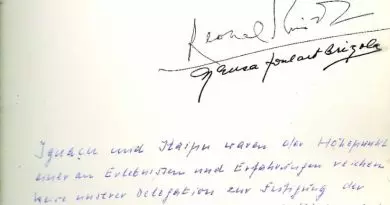 Neusa Goulart Brizola
Iguaçu und Itaipu waren der Höhepunkt
einer an Erlebnissen und Erfahrungen reichen
Reise unserer Delegation zur Festigung der